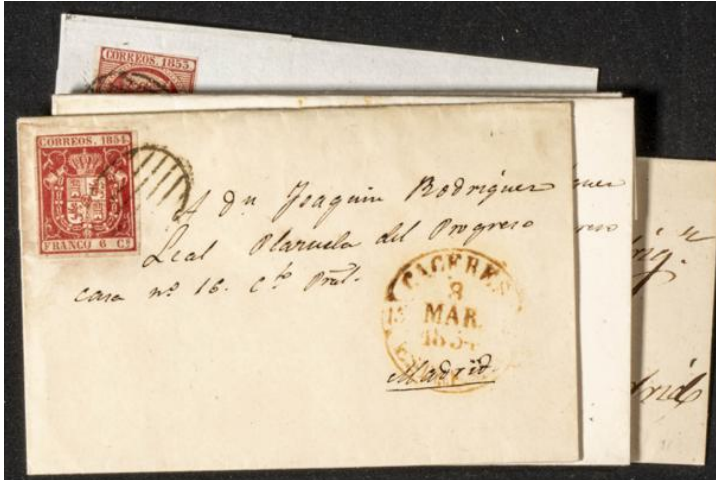 CORREOS. 1853
CORREOS. 1854
FRANCO 6 Cs
A Dn Joaquin Rodriguez
Leal Plazuela del Progreso
casa nº 16. Cto Pral.
CACERES
8
MAR.
1854
Madrid